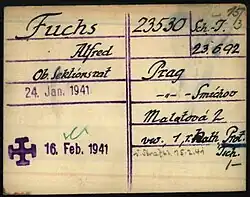 Fuchs 23530
Alfred 23.6.92
Ob. Sektionsrat Prag
24. Jan. 1941 -"- Smíchov
Malátova 2
16. Feb. 1941 verw. 1, r. Kath. Prot.